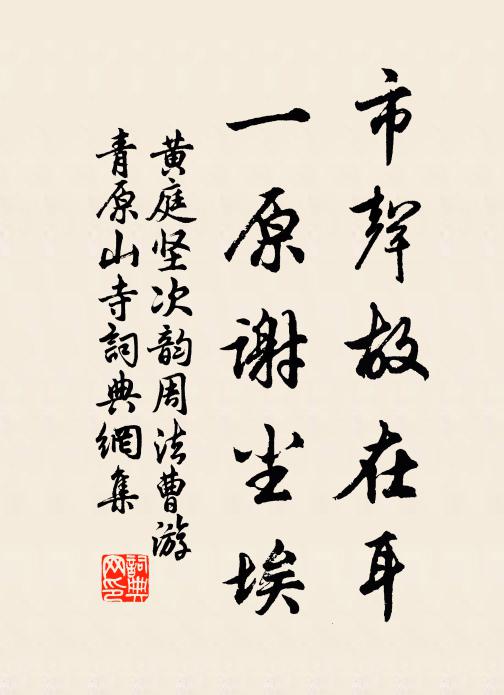 市聲故在耳
一原谢尘埃
黄庭坚次韵周法曹游
青原山寺詞典網集
詞典网印